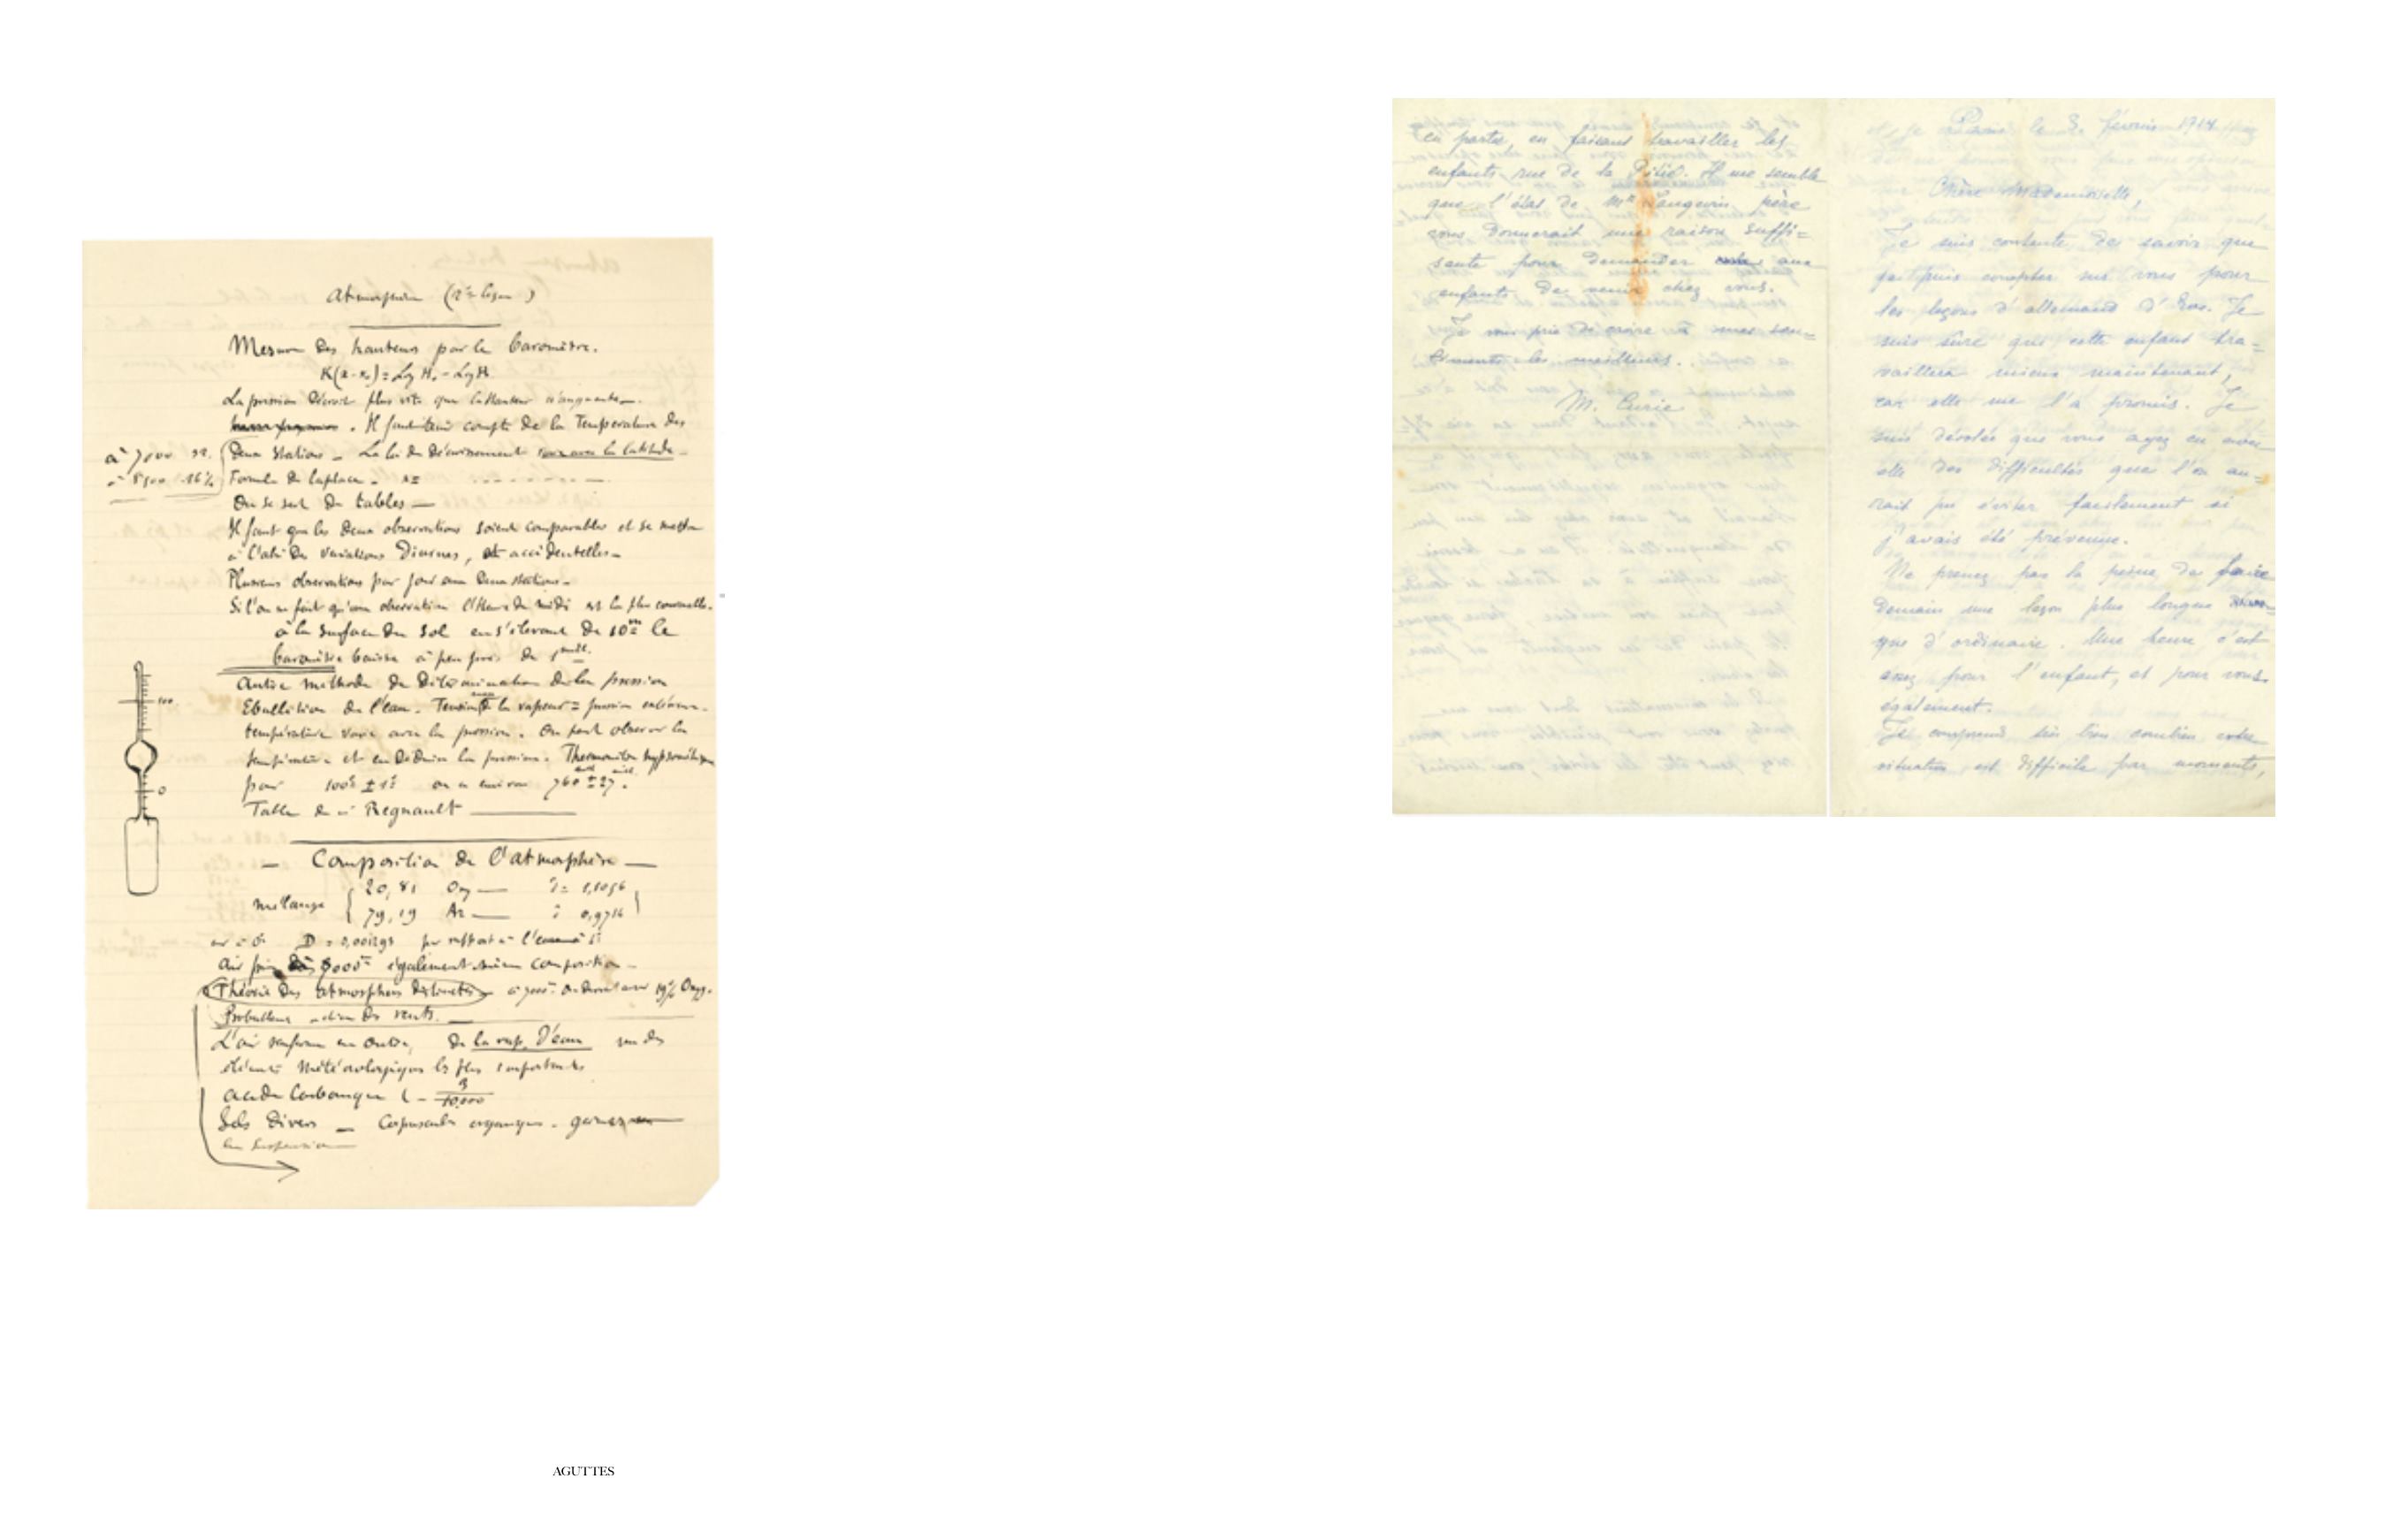 Atmosphère (2e leçon)
Mesure des hauteurs par le baromètre.
K(z-z₀) = Log H₀ - Log H
La pression décroit plus vite que la hauteur n'augmente.
Il faut tenir compte de la Température des
à 7000
à 5500 16%
Deux Stations _ La loi de décroissement varie avec la latitude _
Formule de Laplace. z=
On se sert de tables _
Il faut que les deux observations soient comparables et se mettre
à l'abri des variations diurnes, et accidentelles _
Plusieurs observations par jour aux deux stations _
Si l'on ne fait qu'une observation l'Heure de midi est la plus convenable.
à la surface du sol en s'élevant de 10m le
baromètre baisse à peu près de 1mill.
Autre méthode de détermination de la pression
Ebullition de l'eau. Tension de la vapeur = pression extérieure.
température varie avec la pression. On peut observer la
température et en déduire la pression. Thermomètre hypsométrique
pour 100° ± 1° on a environ 760mill ± 27mill.
Table de Regnault
100
0
_ Composition de l'atmosphère _
mélange { 20,81 Oxy _ δ = 1,1056
79,19 Az _ δ 0,9714 }
air à 0° D = 0,001293 par rapport à l'eau
Air pris à 7000m également même composition _
Théorie des atmosphères distinctes _ à 7000m on devrait avoir 19% Oxyg.
action des vents. _
L'air renferme en outre, de la vap. d'eau un des
éléments Météorologiques les plus importants
acide Carbonique 3/10,000
Sels divers _ Corpuscules organiques. germes
en suspension
en partie, en faisant travailler les
enfants rue de la Pitié. Il me semble
que l'état de Mr Langevin père
vous donnerait une raison suffi=
sante pour demander aux
enfants de venir chez vous.
Je vous prie de croire à mes sen=
timents les meilleurs.
M. Curie
Paris le 3 février 1914
Chère Mademoiselle,
Je suis contente de savoir que
je puis compter sur vous pour
les leçons d'allemand d'Eve. Je
suis sûre que cette enfant tra=
vaillera mieux maintenant,
car elle me l'a promis. Je
suis désolée que vous ayez eu avec
elle des difficultés que l'on au=
rait pu éviter facilement si
j'avais été prévenue.
Ne prenez pas la peine de faire
demain une leçon plus longue
que d'ordinaire. Une heure c'est
assez pour l'enfant, et pour vous
également.
Je comprends très bien combien votre
situation est difficile par moments,
AGUTTES